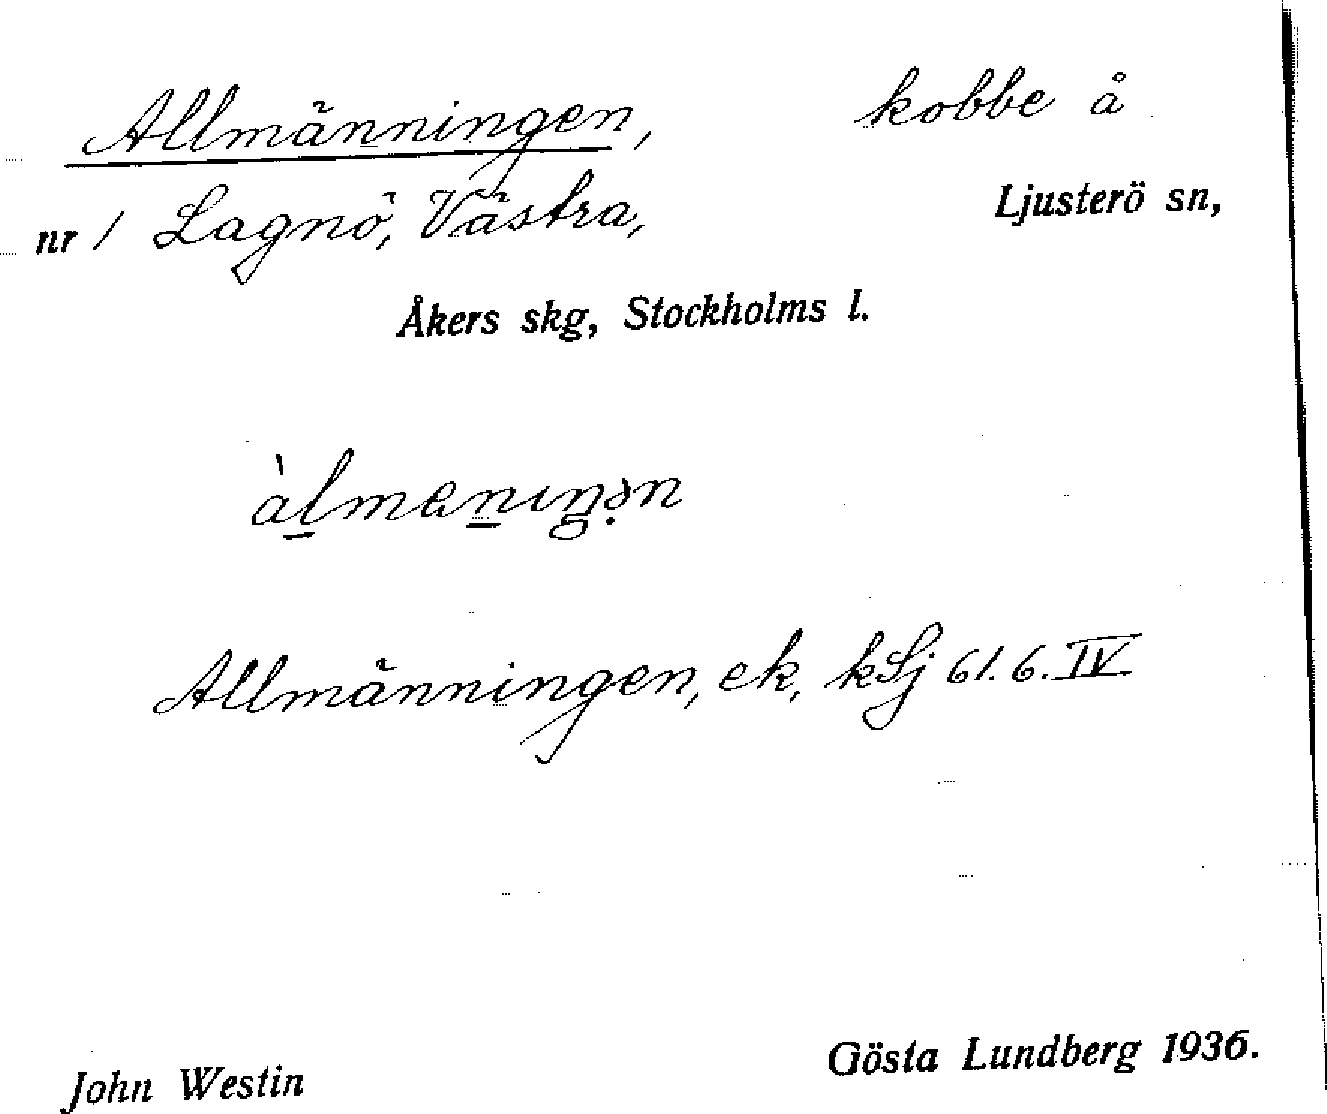 Allmänningen, kobbe å
nr 1 Lagnö, Västra, Ljusterö sn,
Åkers skg, Stockholms l.
àl̲man̲ıŋə̣n
Allmänningen, ek, kLj 61.6.IV
John Westin Gösta Lundberg 1936.